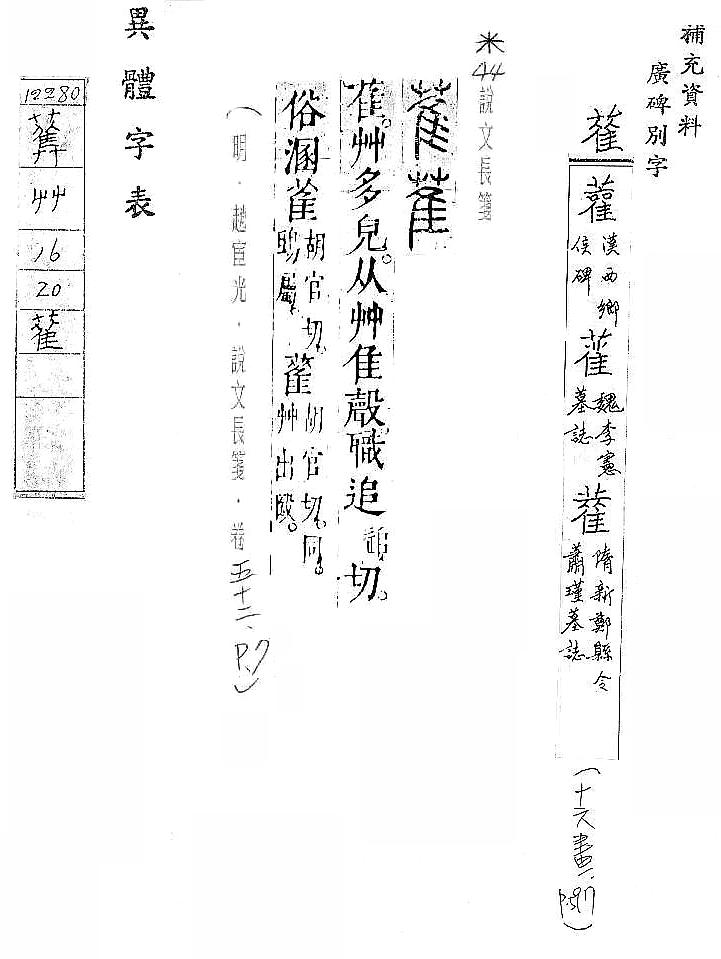 補充資料
廣碑別字
雈
漢西鄉
侯碑
萑
魏李憲
墓誌
隋新鄭縣令
蕭瑾墓誌
(十六畫、P.397)
米
44說文長箋
萑
萑。艸多皃。从艸隹聲職追切。
俗溷雈胡官切。
鴟屬。
胡官切。同。
艸出歐。
(明.趙宧光.說文長箋.卷五十二、P.7)
異體字表
12280
艸
16
20
萑